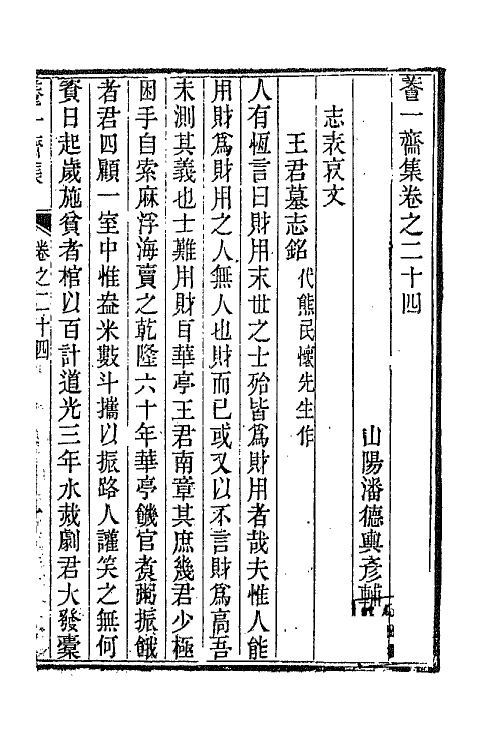 養一齋集卷之二十四
山陽潘德輿彥輔
志表哀文
王君墓志銘代熊民懷先生作
人有恆言曰財用末世之士殆皆爲財用者哉夫惟人能
用財爲財用之人無人也財而已或又以不言財爲高吾
未測其義也士難用財百華亭王君南章其庶幾君少極
困手自索麻浮海賣之乾隆六十年華亭饑官煑粥振餓
者君四顧一室中惟盎米數斗攜以振路人讙笑之無何
貲日起歲施貧者棺以百計道光三年水烖劇君大發橐
養一齋集
卷之二十四